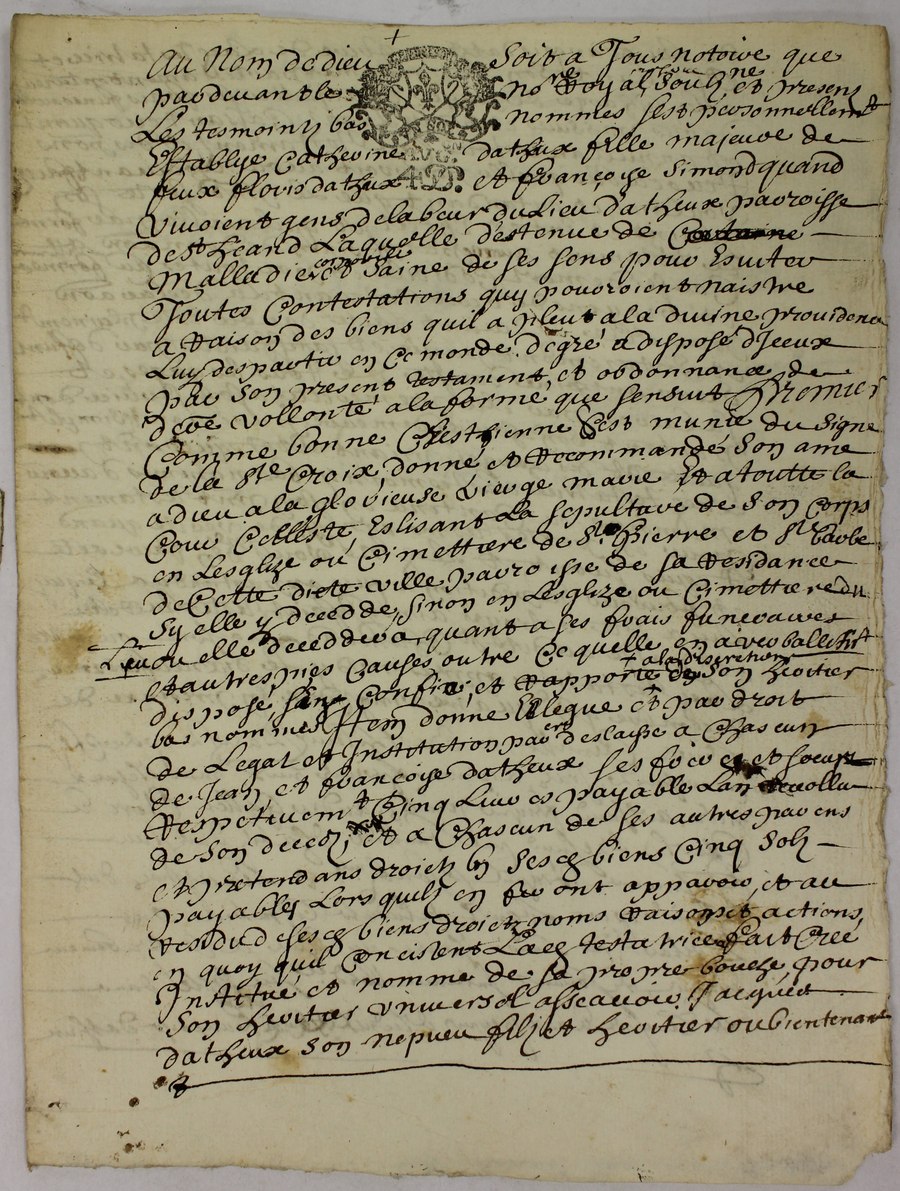 Au Nom de dieu Soit a Tous notoire que
pardevant le no.re Royal soubz.ne et presens
Les tesmointz bas nommes sest personnellem.t
Establye Catherine datheux fille majeure de
feux floris datheux et françoise simond quand
vivoient gens de labeur du Lieu datheux parroisse
de st heand Laquelle destenue de
Malladie corporelle et saine de ses sens pour Esviter
Toutes Contestations quy pourroient naistre
a Raison des biens quil a pleut a la divine providence
Luy despartir en ce monde degré a disposé dJceux
par son present testament et ordonnance de
der.e vollonté a la forme que sensuit Premier
Comme bonne Chresthienne sest munie du signe
de la ste Croix donné et Recommandé son ame
a dieu a la glorieuse vierge marie Et a toutte la
Cour Celleste, Eslisant La sepulture de son Corps
en Lesglize ou Cimettiere de st Pierre et ste barbe
de Cette dicte ville parroisse de sa Residance
sy elle y decedde, sinon en Lesglize ou Cimettiere du
Lieu ou elle deceddera, quant a ses frais funeraires
et autres pies Causes outre Ce quelle en a verballem.t
disposé, sen Confie, et rapporte a la discretion de son heritier
bas nommé Jtem donne Legue et par droit
de Legat et Institution par er.e deslaisse a Chascun
de Jean, et françoise datheux ses frere et soeur
Respectivem.t Cinq Livres payable Lan Revollu
de son deces, et a Chascun de ses autres parens
et pretendans droict en sesd biens Cinq solz
payables Lorsquilz en feront apparoir, et au
Residu de sesd biens droictz noms Raisons et actions,
en quoy quil Concistent Lad testatrice a fait Creé
Institué et nommé de sa propre bouche, pour
son heritier universel asscavoir Jacques
datheux son nepveu filz et heritier ou bientenant